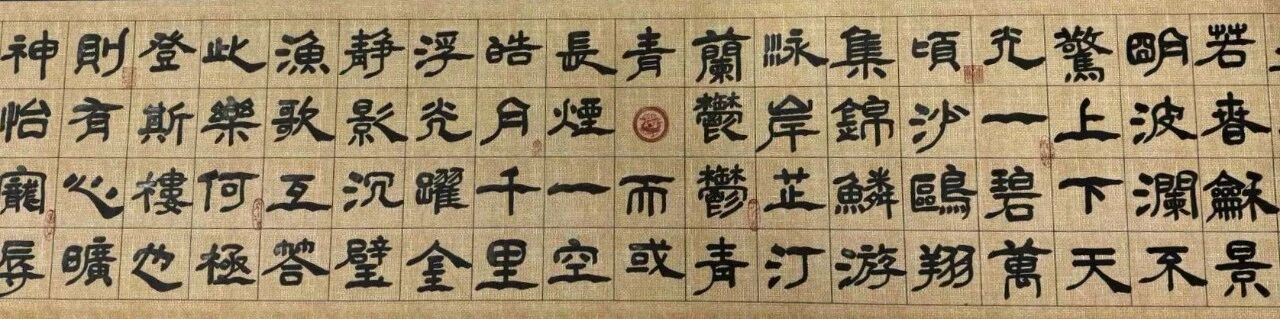 若春龢景
朙波瀾不
驚上下天
光一碧萬
頃沙鷗翔
集錦鱗游
泳岸芷汀
蘭鬱鬱青
青而或
長煙一空
皓月千里
浮光躍金
靜影沉璧
漁歌互答
此樂何極
登斯樓也
則有心曠
神怡寵辱